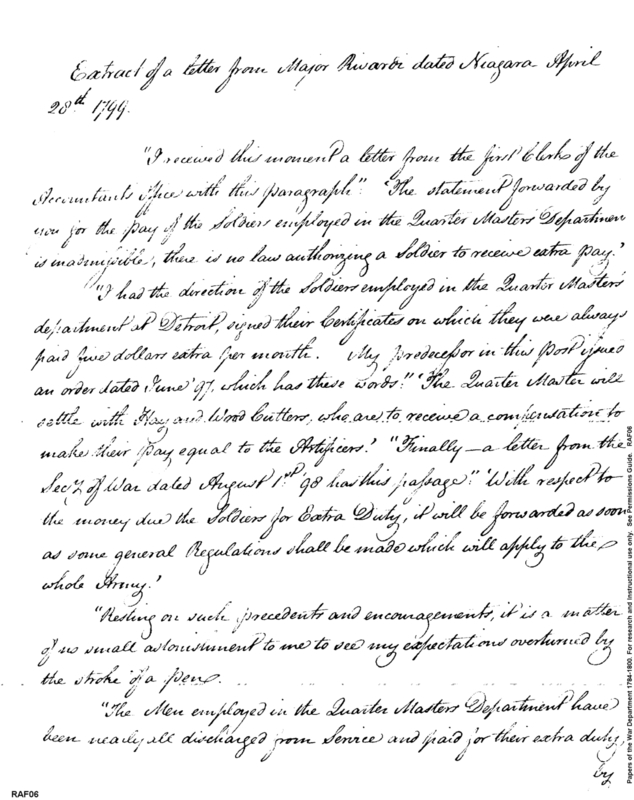 Extract of a letter from Major Rivardi dated Niagara April
28th 1799.
"I received this moment a letter from the first Clerk of the
Accountants office with this paragraph" 'The statement forwarded by
you for the pay of the Soldiers employed in the Quarter Masters Departmen
is inadmissible, there is no law authorizing a Soldier to receive extra pay.'
"I had the direction of the Soldiers employed in the Quarter Masters
department at Detroit, signed their Certificates on which they were always
paid five dollars extra per month. My predecessor in this Post issued
an order dated June '97, which has these words" 'The Quarter Master will
settle with Hay and Wood Cutters, who are to receive a compensation to
make their pay equal to the Artificers.' "Finally — a letter from the
Secy of War dated August 1st 98 has this passage" 'With respect to
the money due the Soldiers for Extra Duty, it will be forwarded as soon
as some general Regulations shall be made which will apply to the
whole Army.'
"Resting on such precedents and encouragements, it is a matter
of no small astonishment to me to see my expectations overturned by
the stroke of a pen.
"The Men employed in the Quarter Masters Department have
been nearly all discharged from Service and paid for their extra duty,
by
RAF06
Papers of the War Department 1784-1800. For research and instructional use only. See Permissions Guide. RAF06